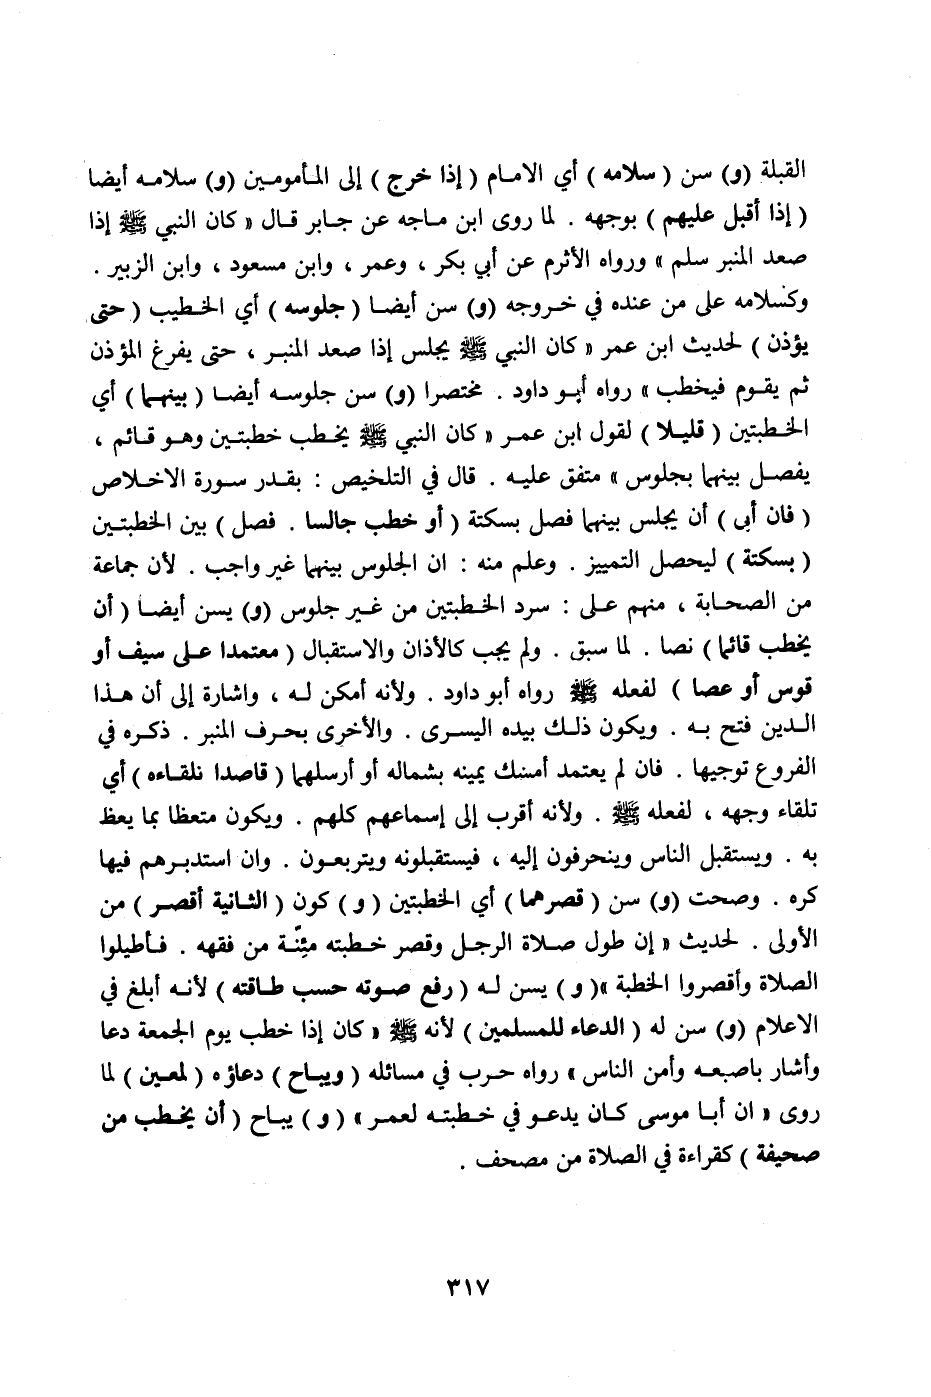 القبلة (و) سن ( سلامه ) أي الامام ( إذا خرج ) إلى المأمومين (و) سلامه أيضا
( إذا أقبل عليهم ) بوجهه . لما روى ابن ماجه عن جابر قال « كان النبي ﷺ إذا
صعد المنبر سلم » ورواه الأثرم عن أبي بكر ، وعمر ، وابن مسعود ، وابن الزبير .
وكسلامه على من عنده في خروجه (و) سن أيضا ( جلوسه ) أي الخطيب ( حتى
يؤذن ) لحديث ابن عمر « كان النبي ﷺ يجلس إذا صعد المنبر ، حتى يفرغ المؤذن
ثم يقوم فيخطب » رواه أبو داود . مختصرا (و) سن جلوسه أيضا ( بينهما ) أي
الخطبتين ( قليلا ) لقول ابن عمر « كان النبي ﷺ يخطب خطبتين وهو قائم ،
يفصل بينهما بجلوس » متفق عليه . قال في التلخيص : بقدر سورة الاخلاص
( فان أبى ) أن يجلس بينهما فصل بسكتة ( أو خطب جالسا . فصل ) بين الخطبتين
( بسكتة ) ليحصل التمييز . وعلم منه : ان الجلوس بينهما غير واجب . لأن جماعة
من الصحابة ، منهم على : سرد الخطبتين من غير جلوس (و) يسن أيضا ( أن
يخطب قائما ) نصا . لما سبق . ولم يجب كالأذان والاستقبال ( معتمدا على سيف أو
قوس أو عصا ) لفعله ﷺ رواه أبو داود . ولأنه أمكن له ، واشارة إلى أن هذا
الدين فتح به . ويكون ذلك بيده اليسرى . والأخرى بحرف المنبر . ذكره في
الفروع توجيها . فان لم يعتمد أمسك يمينه بشماله أو أرسلهما ( قاصدا تلقاءه ) أي
تلقاء وجهه ، لفعله ﷺ . ولأنه أقرب إلى إسماعهم كلهم . ويكون متعظا بما يعظ
به . ويستقبل الناس وينحرفون إليه ، فيستقبلونه ويتربعون . وان استدبرهم فيها
كره . وصحت (و) سن ( قصرهما ) أي الخطبتين ( و ) كون ( الثانية أقصر ) من
الأولى . لحديث « إن طول صلاة الرجل وقصر خطبته مئنّة من فقهه . فأطيلوا
الصلاة وأقصروا الخطبة »( و ) يسن له ( رفع صوته حسب طاقته ) لأنه أبلغ في
الاعلام (و) سن له ( الدعاء للمسلمين ) لأنه ﷺ « كان إذا خطب يوم الجمعة دعا
وأشار باصبعه وأمن الناس » رواه حرب في مسائله ( ويباح ) دعاؤه ( لمعين ) لما
روى « ان أبا موسى كان يدعو في خطبته لعمر » ( و ) يباح ( أن يخطب من
صحيفة ) كقراءة في الصلاة من مصحف .
٣١٧